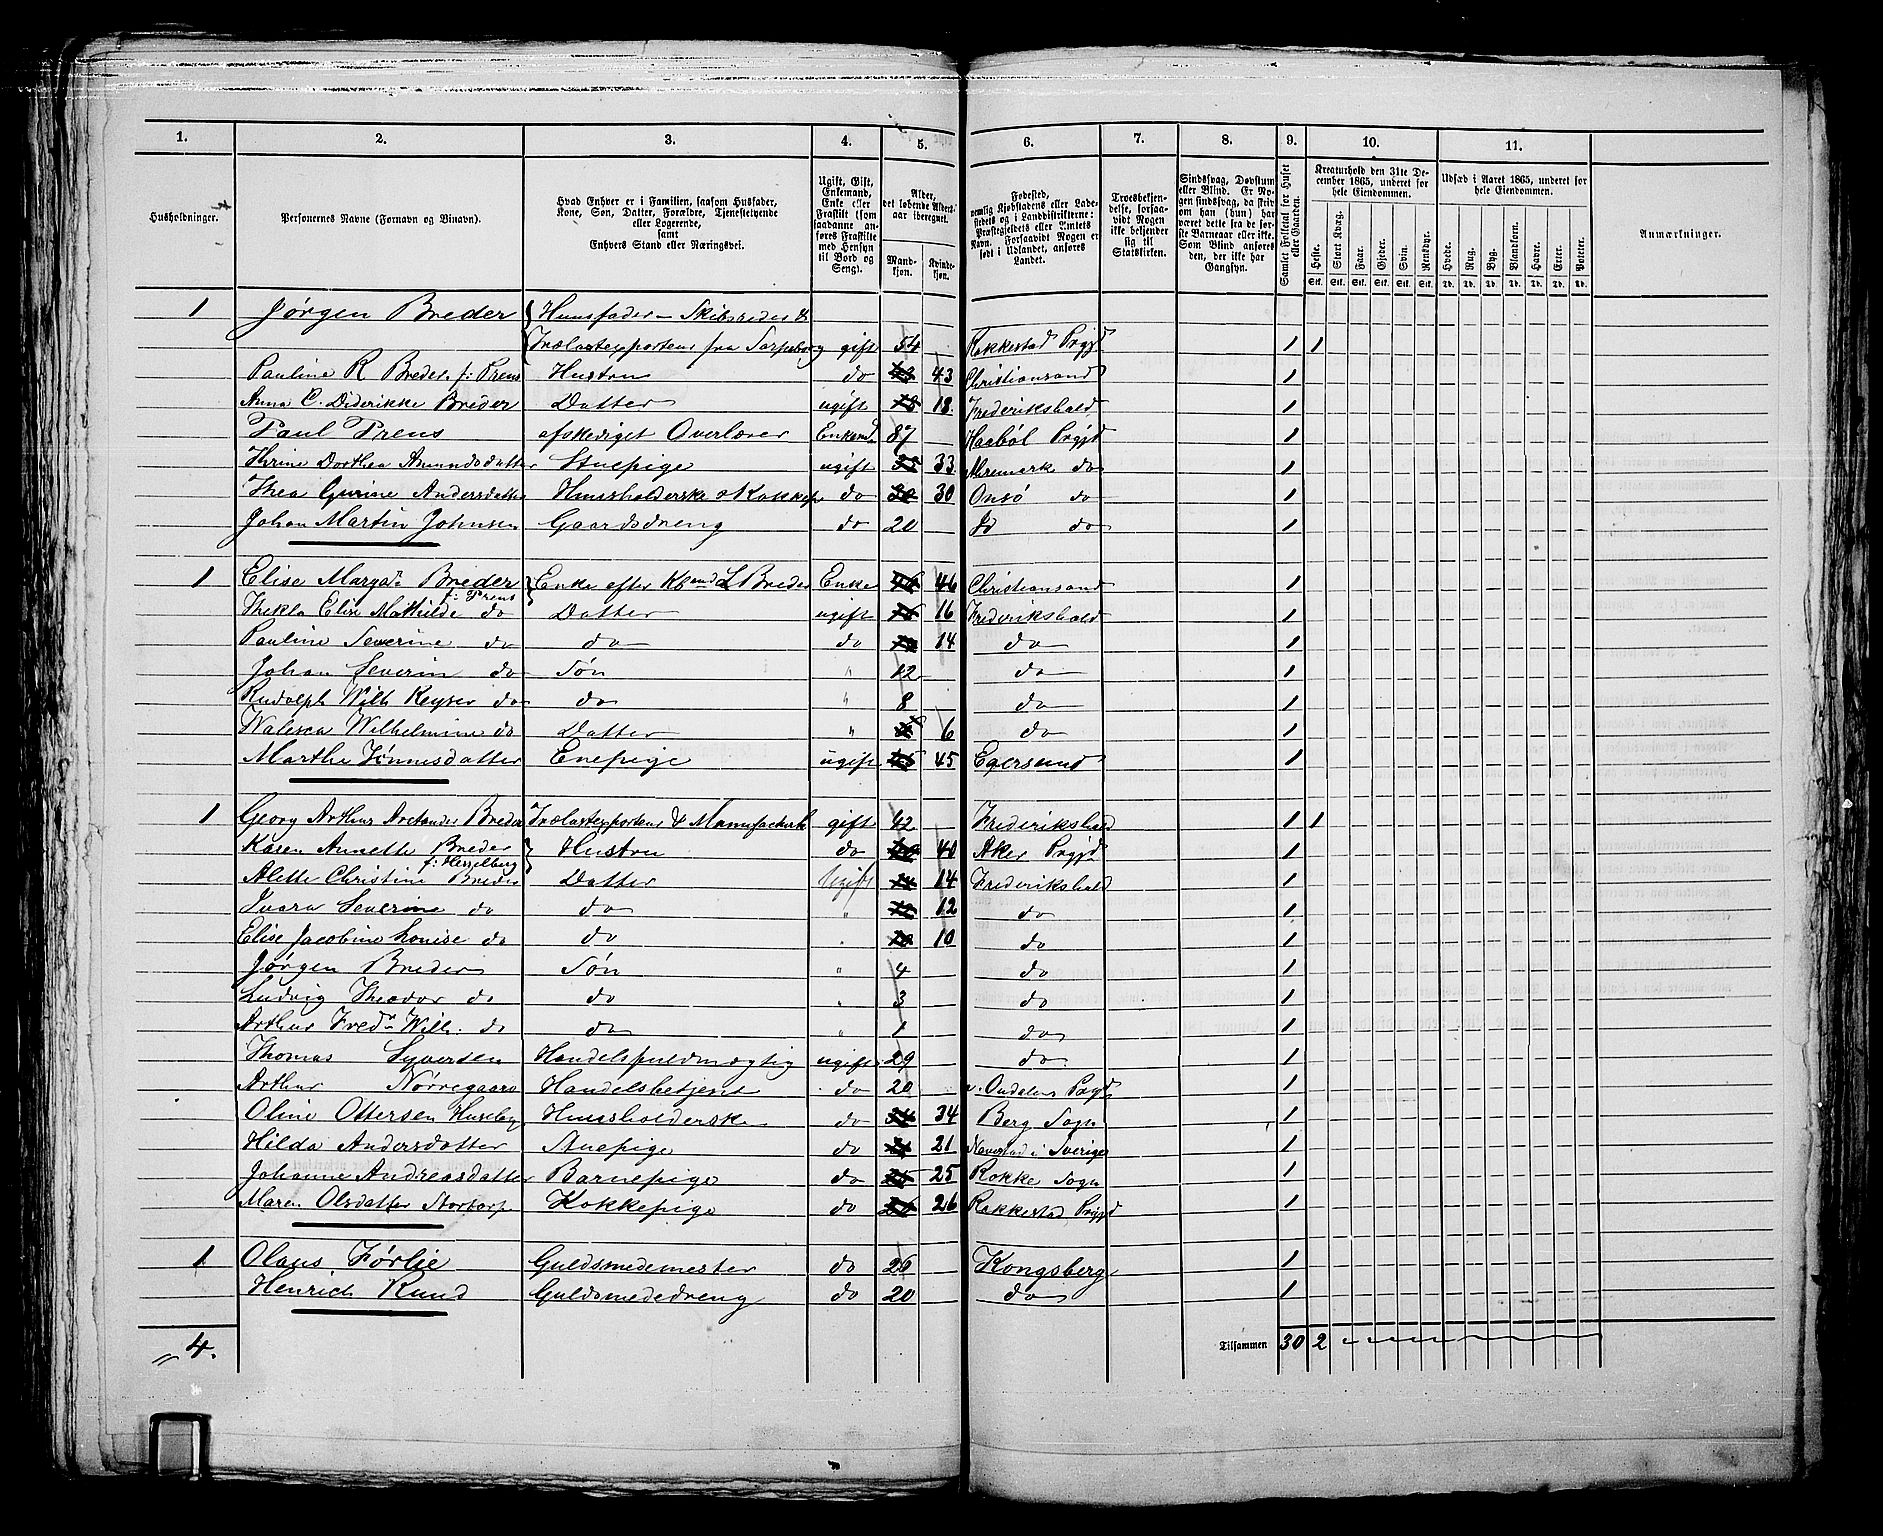 1. 2. 3. 4. 5. 6. 7. 8. 9. 10. 11.
Husholdninger.
Personernes Navne (Fornavn og Binavn).
Hvad Enhver er i Familien, saasom Husfader, Kone, Søn, Datter, Forældre, Tjenestetyende eller Logerende, samt Enhvers Stand eller Næringsvei.
Ugift, Gift, Enkemand, Enke eller Fraskilt (som saadanne anføres Fraskilte med Hensyn til Bord og Seng).
Alder, det løbende Alders-aar iberegnet.
Mand-kjøn. Kvinde-kjøn.
Fødested, nemlig Kjøbstadens eller Ladestedets og i Landdistrikterne: Præstegjeldets eller Amtets Navn. Forsaavidt Nogen er født i Udlandet, anføres Landet.
Troesbekjendelse, forsaavidt Nogen ikke bekjender sig til Statskirken.
Sindssvag, Døvstum eller Blind. Er Nogen sindssvag, da skrives om han (hun) har været dette fra de første Barneaar eller ikke. Som Blind anføres den, der ikke har Gangsyn.
Samlet Folketal for Huset eller Gaarden.
Kreaturhold den 31te December 1865, underet for hele Eiendommen.
Heste. Stort Kvæg. Faar. Gjeder. Svin. Rensdyr.
Stk. Stk. Stk. Stk. Stk. Stk.
Udsæd i Aaret 1865, underet for hele Eiendommen.
Hvede. Rug. Byg. Blandkorn. Havre. Erter. Poteter.
Td. Td. Td. Td. Td. Td. Td.
Anmærkninger.
1 Jørgen Breder Huusfader Skibsreder &
Trælastexporteur fra Sarpsborg gift 54 Rakkestad Prgjd 1 1
Pauline R Breder f: Prens Hustru do 43 43 Christiansand 1
Anna C. Diderikke Breder Datter ugift 18 18. Frederikshald 1
Paul Prens afskediget Overlærer Enkemd 87 Haabøl Prgjd 1
Thrine Dorthea Amundsdatter Stuepige ugift 33 33. Aremark do 1
Thea Gurine Andersdatter Huusholderske o Kokkep do 30 30 Onsø do 1
Johan Martin Johnsen Gaardsdreng do 20 Id do 1
1 Elise Margate Breder Enke efter Kbmd L Breder Enke 46 46 Christiansand 1
f: Prens
Thekla Elise Mathilde do Datter ugift 16 16 Frederikshald 1
Pauline Severine do do do 14 14 do 1
Johan Severin do Søn " 12 do 1
Rudolph Wilh Keyser do do " 8 do 1
Walesca Wilhelmine do Datter " 6 do 1
Marthe Tønnesdatter Enepige ugift 45 45 Egersund 1
1 Georg Arthur Arctander Breder Trælastexporteur & Manufacturh gift 42 Frederikshald 1 1
Karen Annette Breder Hustru do 40 40 Aker Prgjd 1
f: Hesselberg
Alette Christine Breder Datter Ugift 14 14 Frederikshald 1
Ivara Severine do do " 12 12 do 1
Elise Jacobine Louise do do " 10 10 do 1
Jørgen Breder Søn " 4 do 1
Ludvig Theodor do do " 3 do 1
Arthur Fredr Wilh. do do " 1 do 1
Thomas Syversen Handelsfuldmægtig ugift 29 do 1
Arthur Nørregaard Handelsbetjent do 20 Prgjd 1
Oline Ottersen Huseby Huusholderske do 34 34 Berg Sogn 1
Hilda Andersdatter Stuepige do 21 21 Naverstad i Sverige 1
Johanne Andreasdatter Barnepige do 25 25 Rokke Sogn 1
Maren Olsdatter Stortorp Kokkepige do 26 26 Rakkestad Prgjd 1
1 Olaus Førlie Guldsmedemester do 26 Kongsberg 1
Henrich Rund Guldsmededreng do 20 do 1
4. Tilsammen 30 2